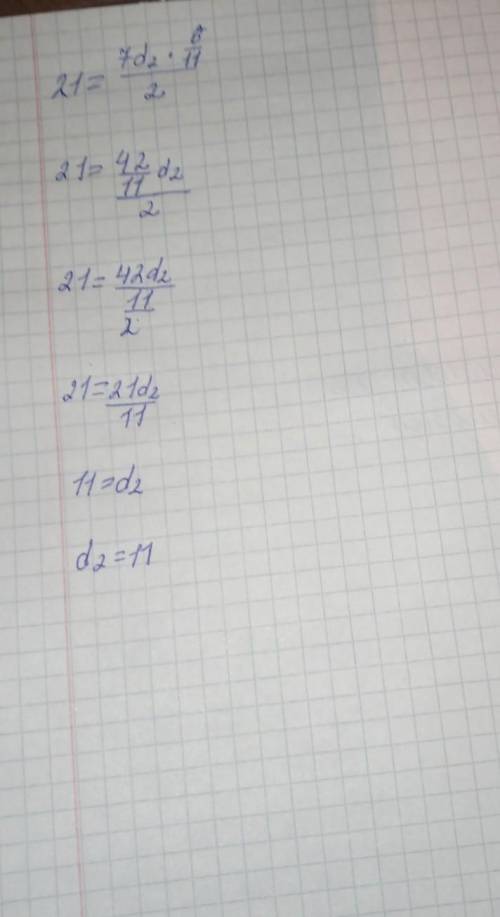 21 = (7d₂ · 6/11)/2
21 = (42/11 d₂)/2
21 = (42d₂/11)/2
21 = 21d₂/11
11 = d₂
d₂ = 11